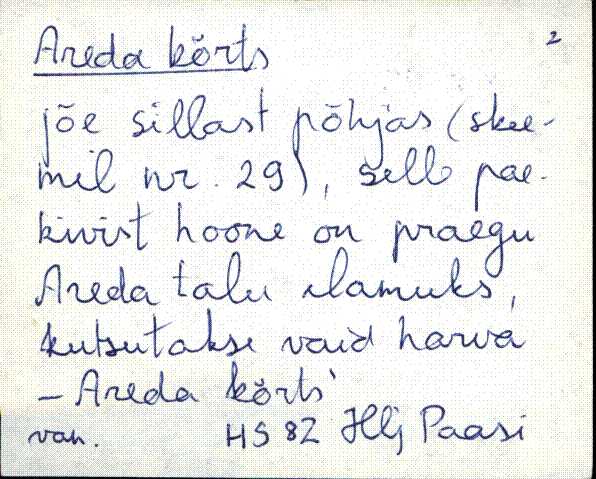 Areda kõrts 2
jõe sillast põhjas (skee-
mil nr. 29), selle pae-
kivist hoone on praegu
Areda talu elamuks,
kutsutakse vaid harva
– Areda kõrts'
van. HS 82 Hlj Paasi